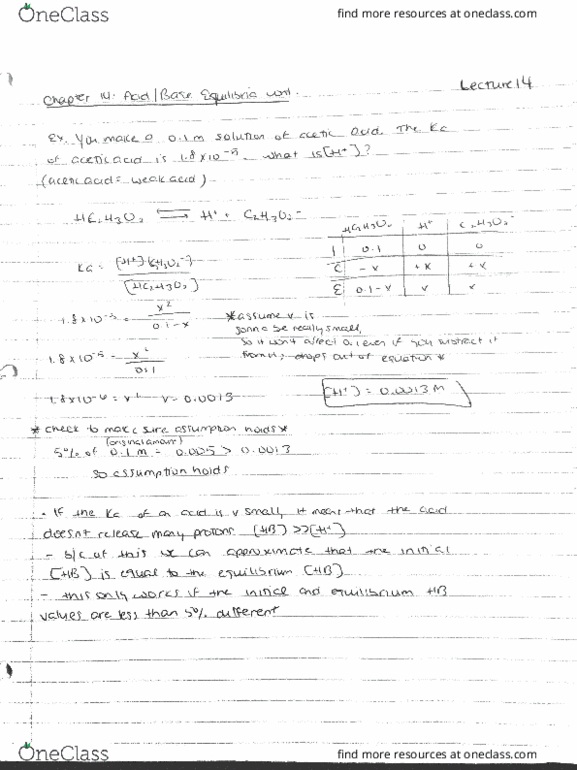 OneClass
find more resources at oneclass.com
Lecture 14
Chapter 14: Acid/Base Equilibria unit.
Ex. You make a 0.1 m solution of acetic acid. The Ka
of acetic acid is 1.8x10⁻⁵. what is [H⁺]?
(acetic acid = weak acid)
HC₂H₃O₂ ⇌ H⁺ + C₂H₃O₂⁻
HC₂H₃O₂ H⁺ C₂H₃O₂⁻
I 0.1 0 0
C -x +x +x
E 0.1-x x x
Ka = [H⁺][C₂H₃O₂⁻] / [HC₂H₃O₂]
1.8x10⁻⁵ = x² / 0.1-x
*assume x is
gonna be really small,
so it won't affect 0.1 even if you subtract it
from it; drops out of equation*
1.8x10⁻⁵ = x² / 0.1
1.8x10⁻⁶ = x² x = 0.0013
[H⁺] = 0.0013 M
*check to make sure assumption holds*
(original amount)
5% of 0.1 m = 0.005 > 0.0013
so assumption holds
• If the Ka of an acid is v small, it means that the acid
doesnt release many protons. [HB] >> [H⁺]
- b/c of this we can approximate that the initial
[HB] is equal to the equilibrium [HB]
- this only works if the initial and equilibrium HB
values are less than 5% different
OneClass
find more resources at oneclass.com